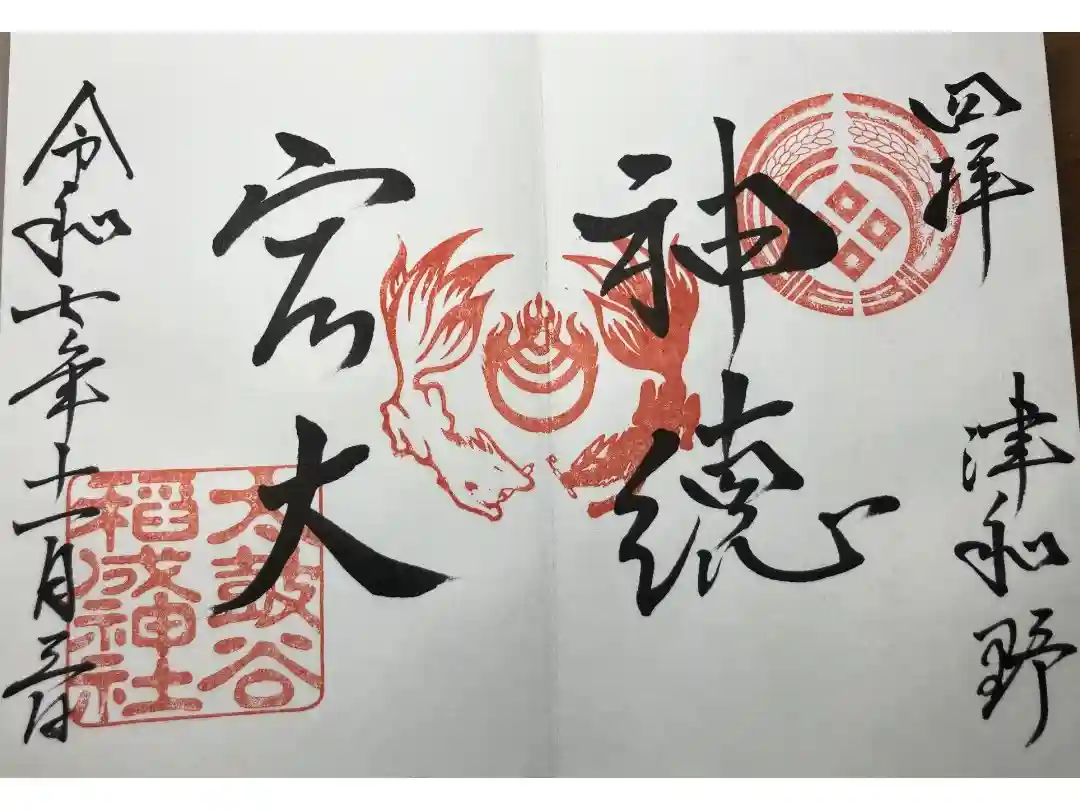 四拝
津和野
神徳
宏大
太皷谷
稻成神社
令和七年十一月三日